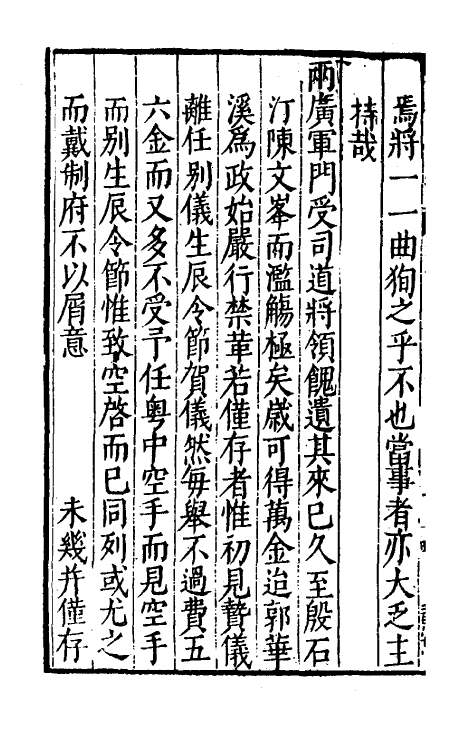 焉將一一曲狥之乎不也當事者亦大乏主
持哉
兩廣軍門受司道將領餽遺其來已久至殷石
汀陳文峯而濫觴極矣歲可得萬金迨郭華
溪爲政始嚴行禁革若僅存者惟初見贄儀
離任别儀生辰令節賀儀然每舉不過費五
六金而又多不受予任粤中空手而見空手
而别生辰令節惟致空啓而已同列或尤之
而戴制府不以屑意　未幾并僅存